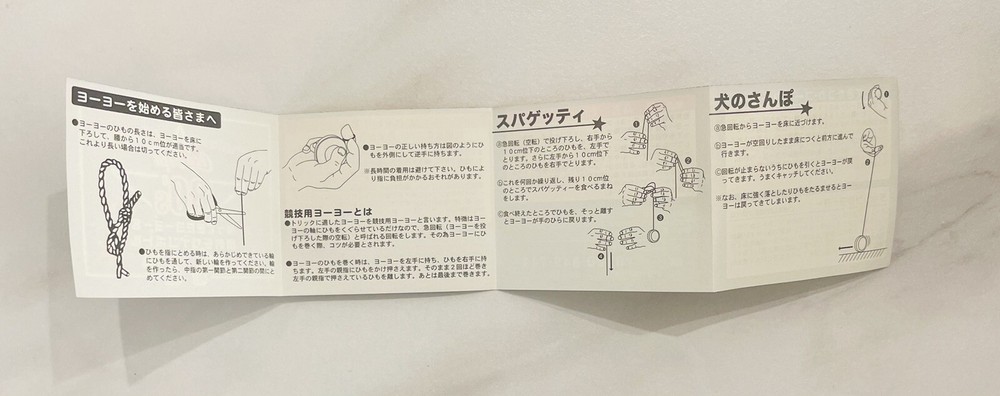 ヨーヨーを始める皆さまへ
●ヨーヨーのひもの長さは、ヨーヨーを床に
下ろして、腰から10cm位が適当です。
これより長い場合は切ってください。
●ひもを指にとめる時は、あらかじめできている輪
にひもを通して、新しい輪を作ってください。輪
を作ったら、中指の第一関節と第二関節の間にと
めてください。
●ヨーヨーの正しい持ち方は図のようにひ
もを外側にして逆手に持ちます。
※長時間の着用は避けて下さい。ひもによ
り指に負担がかかるおそれがあります。
競技用ヨーヨーとは
●トリックに適したヨーヨーを競技用ヨーヨーと言います。特徴はヨー
ヨーの軸にひもをくくらせているだけなので、急回転(ヨーヨーを投
げ下ろした際の空転)と呼ばれる回転をします。その為ヨーヨーにひ
もを巻く際、コツが必要とされます。
●ヨーヨーのひもを巻く時は、ヨーヨーを左手に持ち、ひもを右手に持
ちます。左手の親指にひもをかけ押さえます。そのまま2回ほど巻き
左手の親指で押さえているひもを離します。あとは最後まで巻きます。
スパゲッティ
ⓐ急回転(空転)で投げ下ろし、右手から
10cm位下のところのひもを、左手で
とります。さらに左手から10cm位下
のところのひもを右手でとります。
ⓑこれを何回か繰り返し、残り10cm位
のところでスパゲッティーを食べるまね
をします。
ⓒ食べ終えたところでひもを、そっと離す
とヨーヨーが手のひらに戻ります。
❶
❷
❸
❹
犬のさんぽ
ⓐ急回転からヨーヨーを床に近づけます。
ⓑヨーヨーが空回りしたまま床につくと前方に進んで
行きます。
ⓒ回転が止まらないうちにひもを引くとヨーヨーが戻
ってきます。うまくキャッチしてください。
※なお、床に強く落としたりひもをたるませるとヨー
ヨーは戻ってきてしまいます。
❶
❷